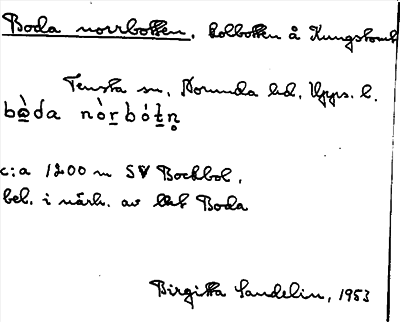 Boda norrbotten, kolbotten å Kungstomt
Tensta sn, Norunda hd, Upps. l.
bȯ̠da nòr̠bót̠n̥
c:a 1200 m SV Bockbol,
bel. i närh. av Boda
Birgitta Sandelin, 1953